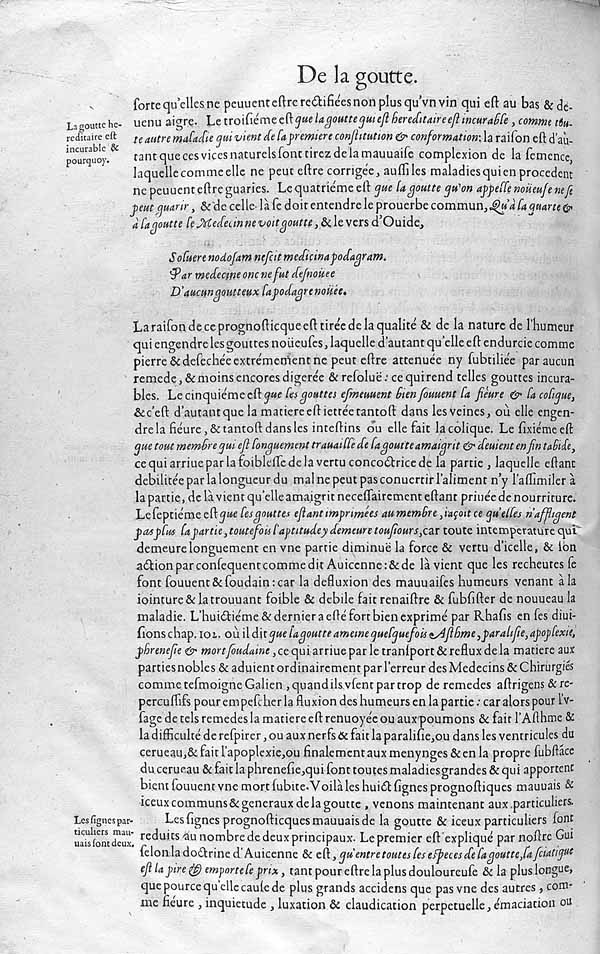 De la goutte.
ſorte qu'elles ne peuuent eſtre rectifiées non plus qu'vn vin qui eſt au bas & de-
uenu aigre. Le troiſiéme eſt que la goutte qui eſt hereditaire eſt incurable, comme tou-
te autre maladie qui vient de ſa premiere conſtitution & conformation: la raiſon eſt d'au-
tant que ces vices naturels ſont tirez de la mauuaiſe complexion de la ſemence,
laquelle comme elle ne peut eſtre corrigée, auſſi les maladies qui en procedent
ne peuuent eſtre guaries. Le quatriéme eſt que la goutte qu'on appelle noüeuſe ne ſe
peut guarir, & de celle-là ſe doit entendre le prouerbe commun, Qu'à la quarte &
à la goutte le Medecin ne voit goutte, & le vers d'Ouide,
La goutte he-
reditaire eſt
incurable &
pourquoy.
Soluere nodoſam neſcit medicina podagram.
Par medecine onc ne fut deſnoüee
D'aucun goutteux la podagre noüée.
La raiſon de ce prognoſticque eſt tirée de la qualité & de la nature de l'humeur
qui engendre les gouttes noüeuſes, laquelle d'autant qu'elle eſt endurcie comme
pierre & deſechée extrémement ne peut eſtre attenuée ny ſubtiliée par aucun
remede, & moins encores digerée & reſoluë: ce qui rend telles gouttes incura-
bles. Le cinquiéme eſt que les gouttes eſmeuuent bien ſouuent la fiéure & la colique,
& c'eſt d'autant que la matiere eſt iettée tantoſt dans les veines, où elle engen-
dre la fiéure, & tantoſt dans les inteſtins où elle fait la colique. Le ſixiéme eſt
que tout membre qui eſt longuement trauaillé de la goutte amaigrit & deuient en fin tabide,
ce qui arriue par la foibleſſe de la vertu concoctrice de la partie, laquelle eſtant
debilitée par la longueur du mal ne peut pas conuertir l'aliment n'y l'aſſimiler à
la partie, de là vient qu'elle amaigrit neceſſairement eſtant priuée de nourriture.
Le ſeptiéme eſt que les gouttes eſtant imprimées au membre, iaçoit ce qu'elles n'affligent
pas plus la partie, toutefois l'aptitude y demeure touſiours, car toute intemperature qui
demeure longuement en vne partie diminuë la force & vertu d'icelle, & ſon
action par conſequent comme dit Auicenne: & de là vient que les recheutes ſe
font ſouuent & ſoudain: car la defluxion des mauuaiſes humeurs venant à la
iointure & la trouuant foible & debile fait renaiſtre & ſubſiſter de nouueau la
maladie. L'huictiéme & dernier a eſté fort bien exprimé par Rhaſis en ſes diui-
ſions chap. 102. où il dit que la goutte ameine quelquefois Aſthme, paraliſie, apoplexie,
phreneſie & mort ſoudaine, ce qui arriue par le tranſport & reflux de la matiere aux
parties nobles & aduient ordinairement par l'erreur des Medecins & Chirurgiēs
comme teſmoigne Galien, quand ils vſent par trop de remedes aſtrigens & re-
percuſſifs pour empeſcher la fluxion des humeurs en la partie: car alors pour l'v-
ſage de tels remedes la matiere eſt renuoyée ou aux poumons & fait l'Aſthme &
la difficulté de reſpirer, ou aux nerfs & fait la paraliſie, ou dans les ventricules du
cerueau, & fait l'apoplexie, ou finalement aux menynges & en la propre ſubſtāce
du cerueau & fait la phreneſie, qui ſont toutes maladies grandes & qui apportent
bien ſouuent vne mort ſubite. Voilà les huict ſignes prognoſtiques mauuais &
iceux communs & generaux de la goutte, venons maintenant aux particuliers.
Les ſignes prognoſticques mauuais de la goutte & iceux particuliers ſont
reduits au nombre de deux principaux. Le premier eſt expliqué par noſtre Gui
ſelon la doctrine d'Auicenne & eſt, qu'entre toutes les eſpeces de la goutte, la ſciatique
eſt la pire & emporte le prix, tant pour eſtre la plus douloureuſe & la plus longue,
que pource qu'elle cauſe de plus grands accidens que pas vne des autres, com-
me fiéure, inquietude, luxation & claudication perpetuelle, émaciation ou
Les ſignes par-
ticuliers mau-
uais ſont deux.